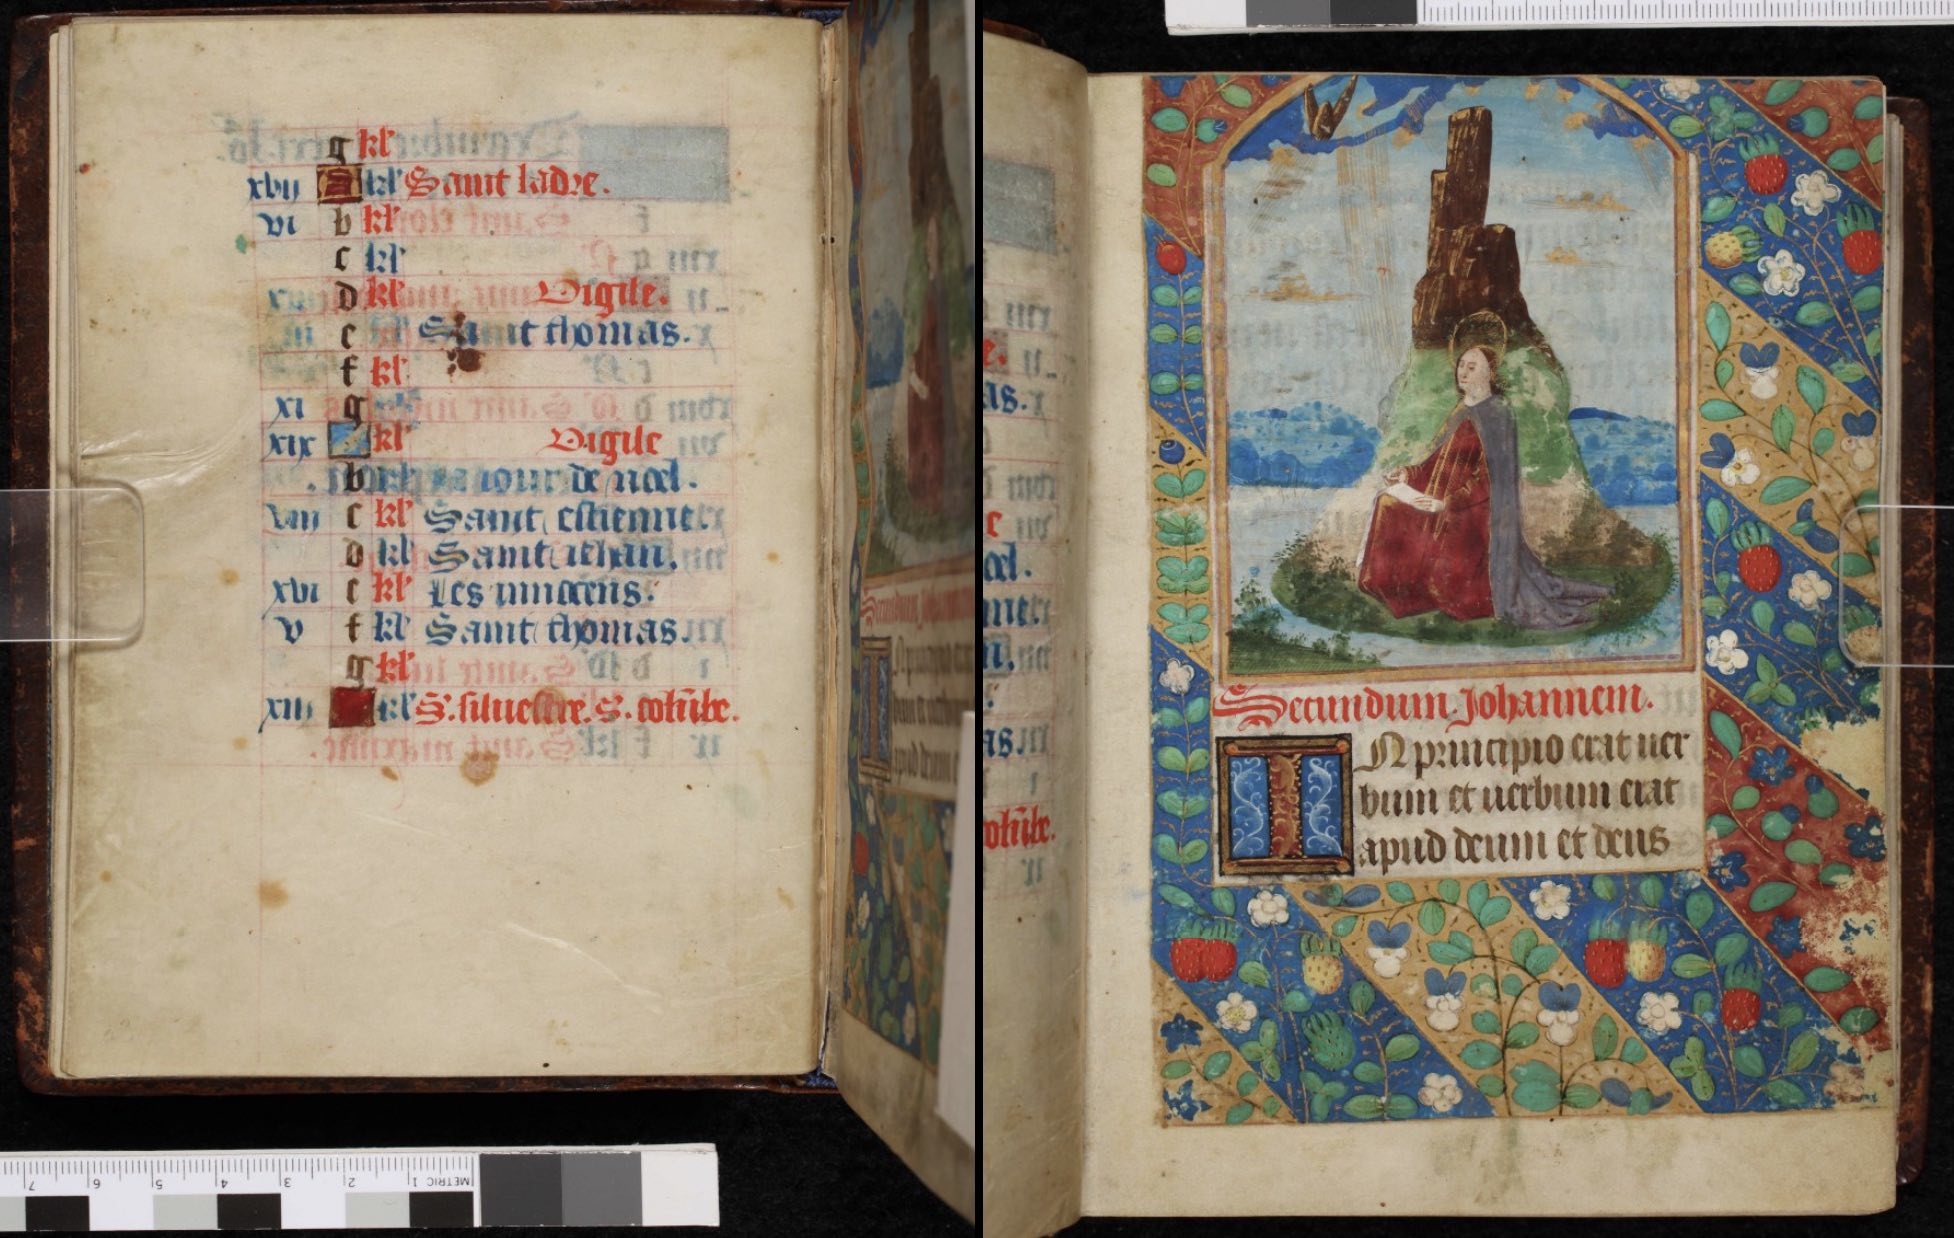 g kl'
xvii A kl' Saint ladre.
vi b kl'
c kl'
d kl' Vigile.
iii e kl' Saint thomas.
f kl'
xi g
xix kl' Vigile
b iour de noel.
viii c kl' Saint estienne.
d kl' Saint iehan.
xvi e kl' Les innocens.
v f kl' Saint thomas.
g kl'
xiii kl' S. siluestre. S. colūbe.
7 6 5 4 3 2 1 METRIC
Secundum Johannem.
IN principio erat uer
bum et uerbum erat
apud deum et deus